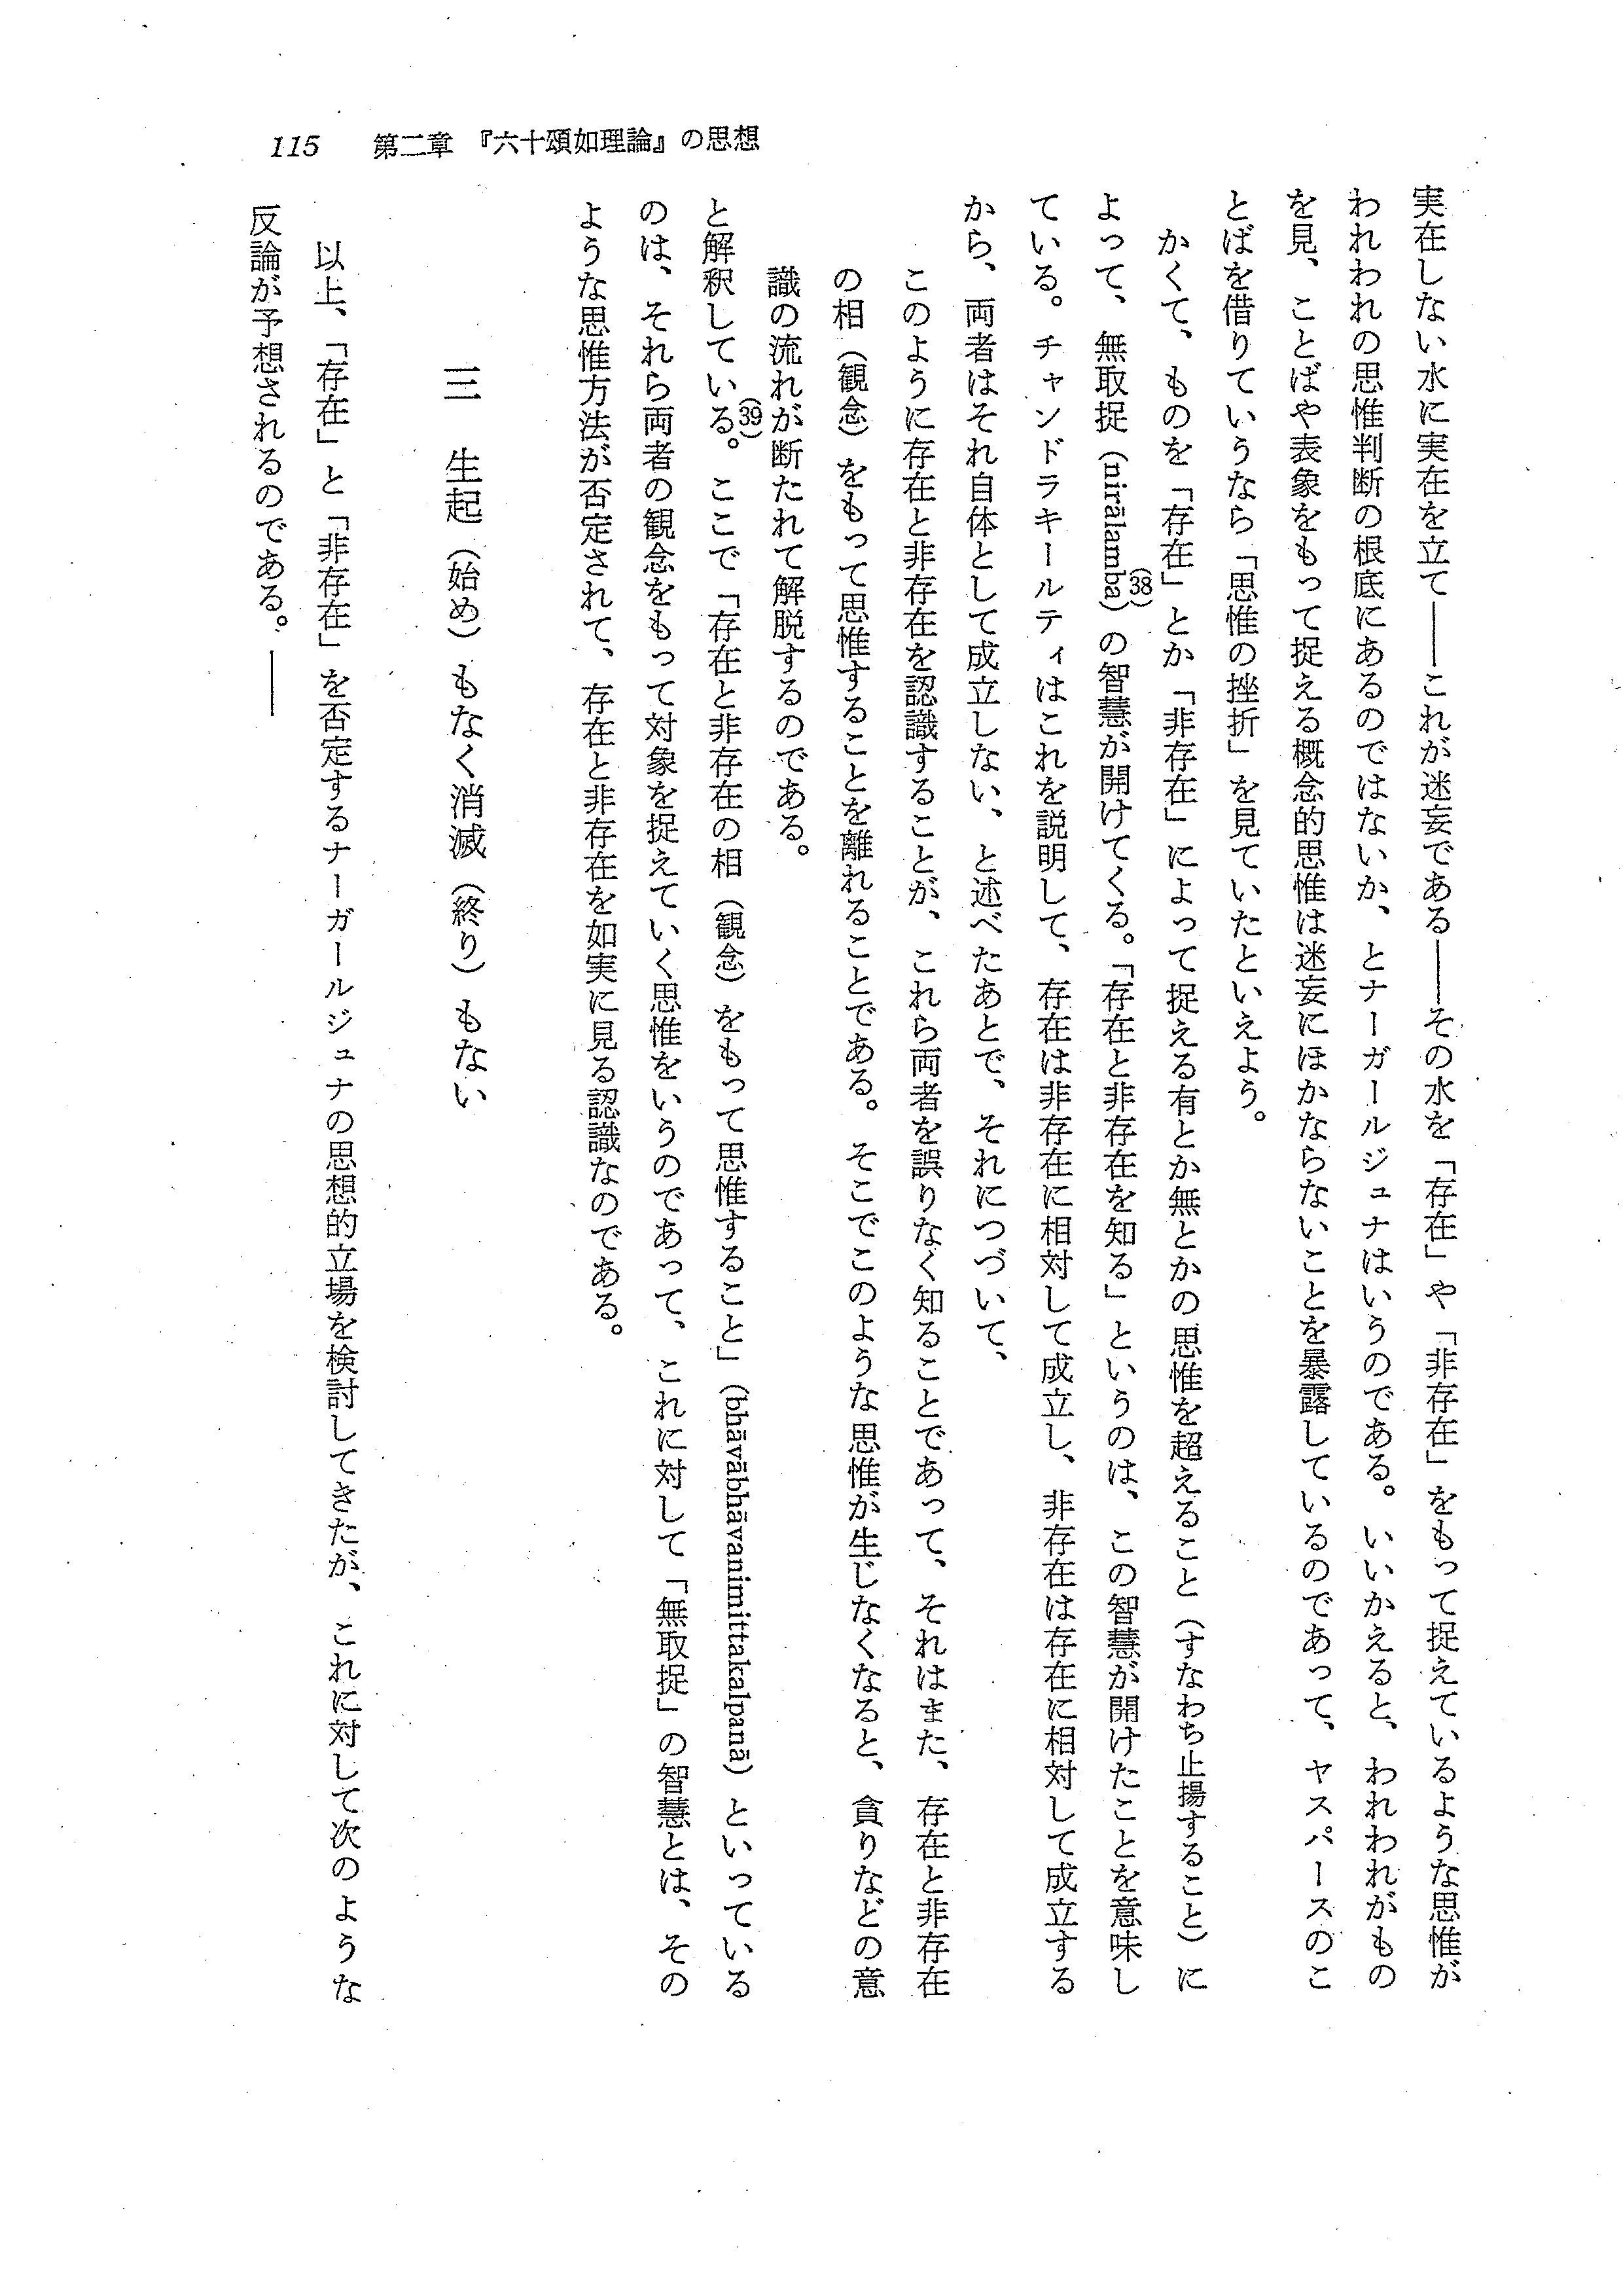 115　第二章　『六十頌如理論』の思想
実在しない水に実在を立て――これが迷妄である――その水を「存在」や「非存在」をもって捉えているような思惟が
われわれの思惟判断の根底にあるのではないか、とナーガールジュナはいうのである。いいかえると、われわれがもの
を見、ことばや表象をもって捉える概念的思惟は迷妄にほかならないことを暴露しているのであって、ヤスパースのこ
とばを借りていうなら「思惟の挫折」を見ていたといえよう。
かくて、ものを「存在」とか「非存在」によって捉える有とか無とかの思惟を超えること（すなわち止揚すること）に
よって、無取捉（nirālamba）(38)の智慧が開けてくる。「存在と非存在を知る」というのは、この智慧が開けたことを意味し
ている。チャンドラキールティはこれを説明して、存在は非存在に相対して成立し、非存在は存在に相対して成立する
から、両者はそれ自体として成立しない、と述べたあとで、それにつづいて、
このように存在と非存在を認識することが、これら両者を誤りなく知ることであって、それはまた、存在と非存在
の相（観念）をもって思惟することを離れることである。そこでこのような思惟が生じなくなると、貪りなどの意
識の流れが断たれて解脱するのである。
と解釈している(39)。ここで「存在と非存在の相（観念）をもって思惟すること」（bhāvābhāvanimittakalpanā）といっている
のは、それら両者の観念をもって対象を捉えていく思惟をいうのであって、これに対して「無取捉」の智慧とは、その
ような思惟方法が否定されて、存在と非存在を如実に見る認識なのである。
三　生起（始め）もなく消滅（終り）もない
以上、「存在」と「非存在」を否定するナーガールジュナの思想的立場を検討してきたが、これに対して次のような
反論が予想されるのである。――